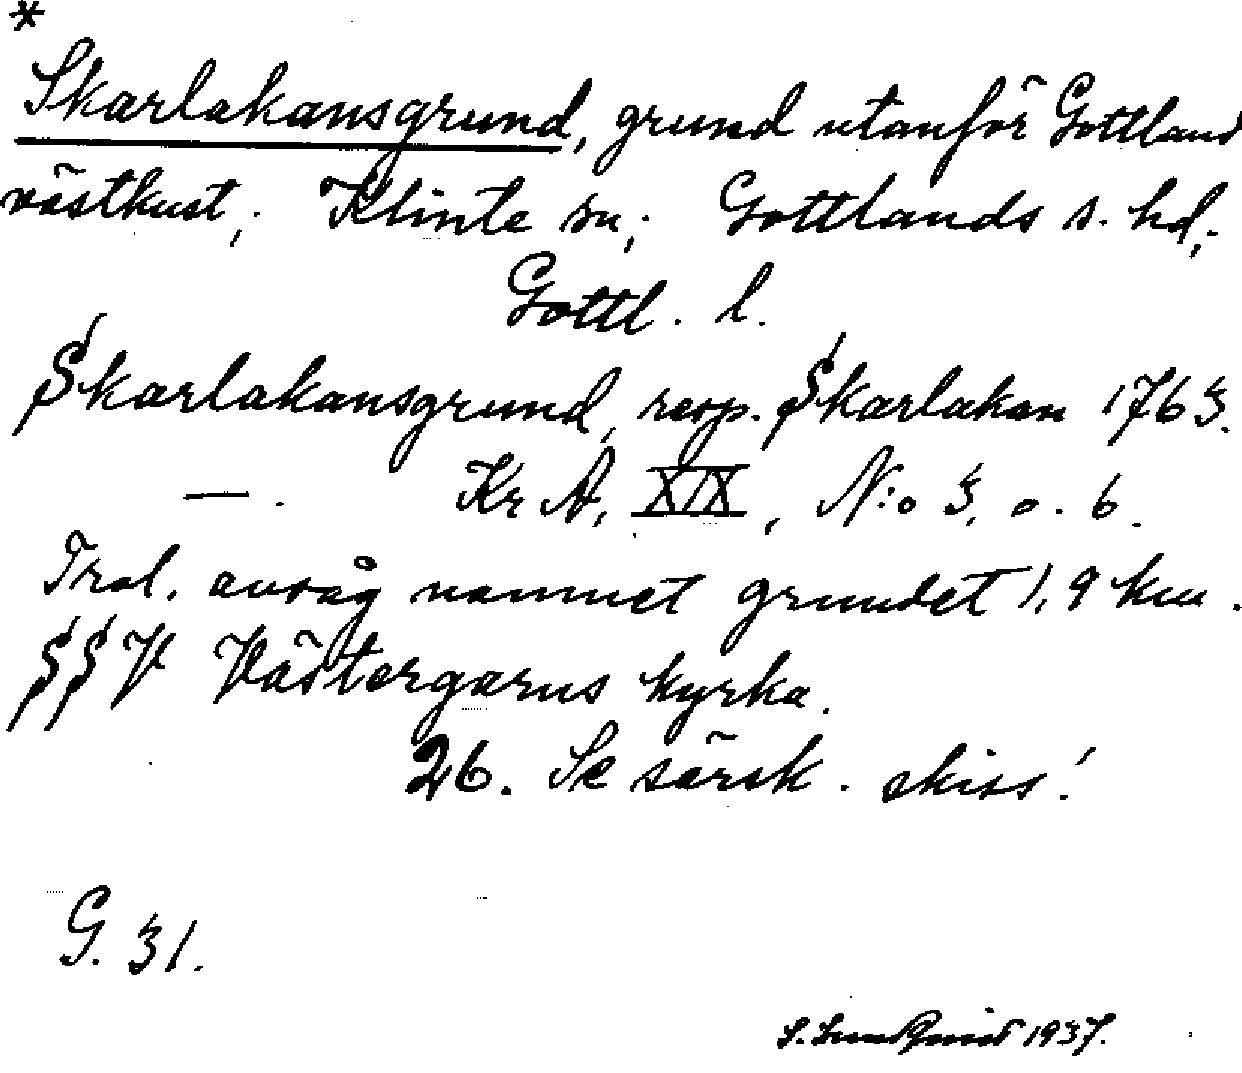 *
Skarlakansgrund, grund utanför Gottland
västkust; Klinte sn; Gottlands s. hd;
Gottl. l.
Skarlakansgrund, resp. Skarlakan 1763.
—. Kr A, XIX, N:o 3, o. 6.
Trol. avsåg namnet grundet 1,9 km.
SSV Västergarns kyrka.
26. Se särsk. skiss!
G. 31.
S. Lundquist 1937.